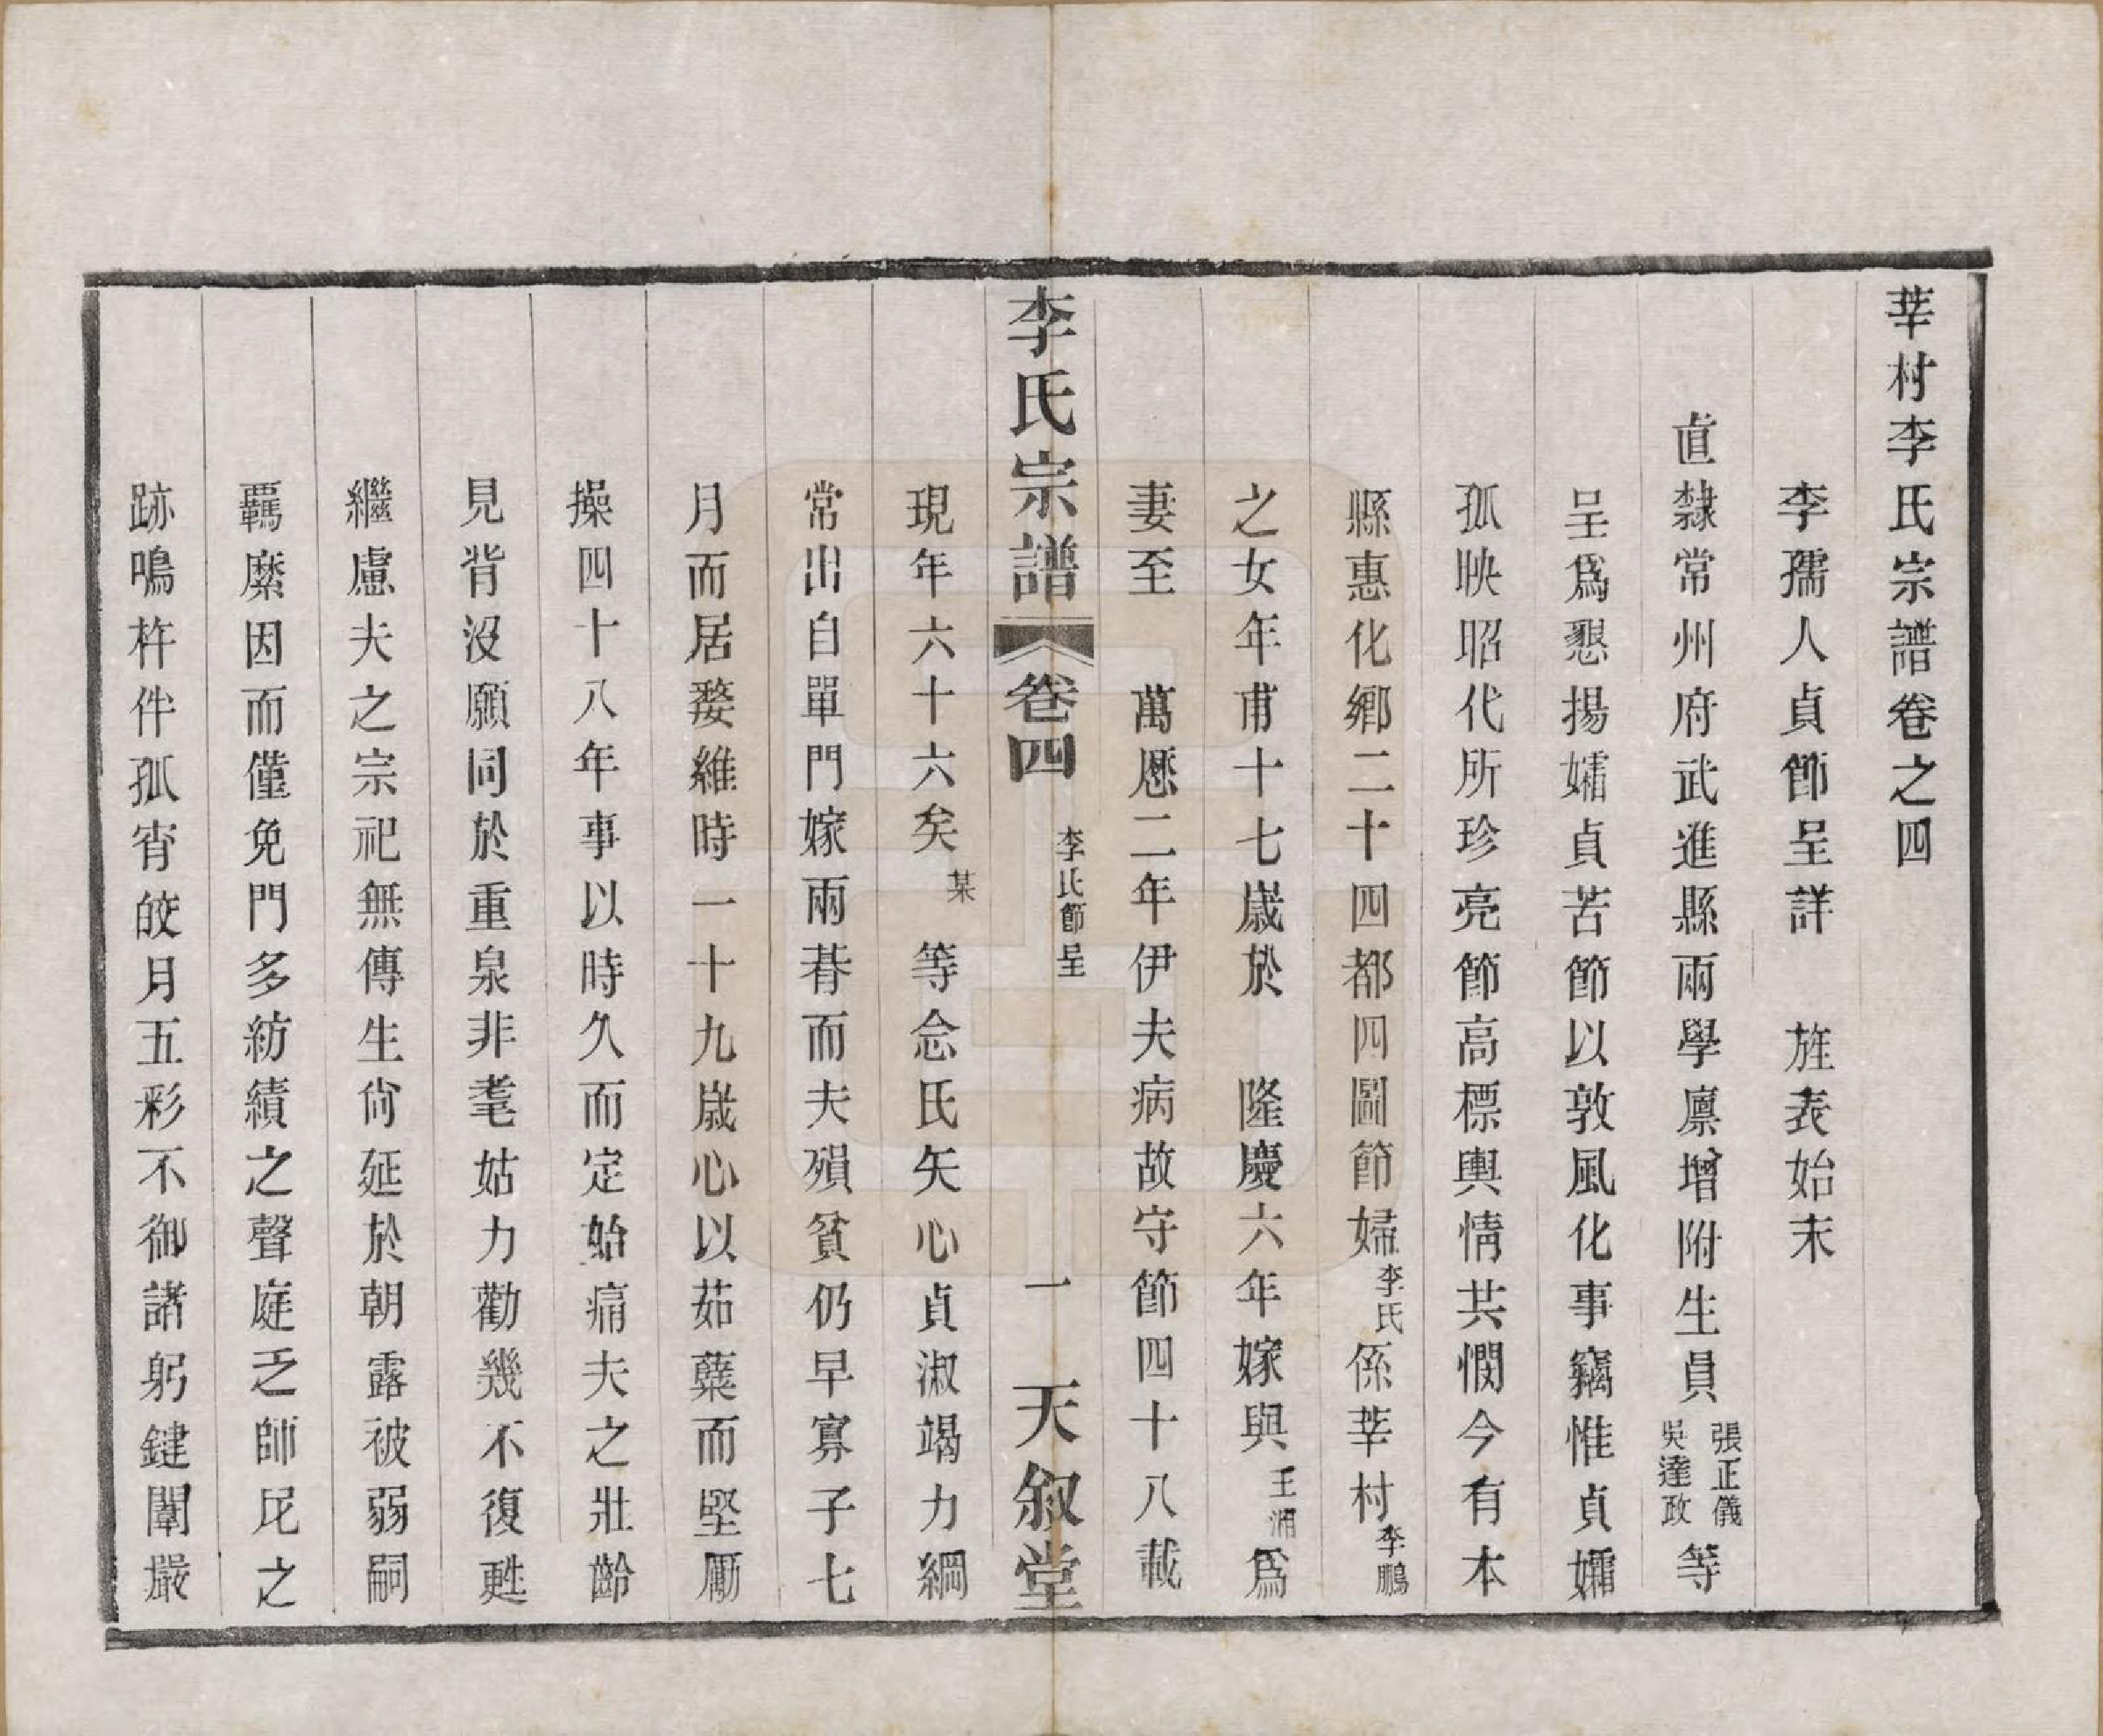 莘村李氏宗譜卷之四
李孺人貞節呈詳　旌表始末
直隸常州府武進縣兩學廩增附生員張正儀吳達政等
呈爲懇揚孀貞苦節以敦風化事竊惟貞孀
孤映昭代所珍亮節高標輿情共憫今有本
縣惠化鄉二十四都四圖節婦李氏係莘村李鵬
之女年甫十七歲於　隆慶六年嫁與王浦爲
妻至　萬曆二年伊夫病故守節四十八載
李氏宗譜　卷四　李氏節呈　一　天叙堂
現年六十六矣某等念氏矢心貞淑竭力綱
常出自單門嫁兩朞而夫殞貧仍早寡子七
月而居嫠維時一十九歲心以茹蘖而堅勵
操四十八年事以時久而定始痛夫之壯齡
見背沒願同於重泉非耄姑力勸幾不復甦
繼慮夫之宗祀無傳生尙延於朝露被弱嗣
羈縻因而僅免門多紡績之聲庭乏師尼之
跡鳴杵伴孤宵皎月五彩不御諸躬鍵闈嚴